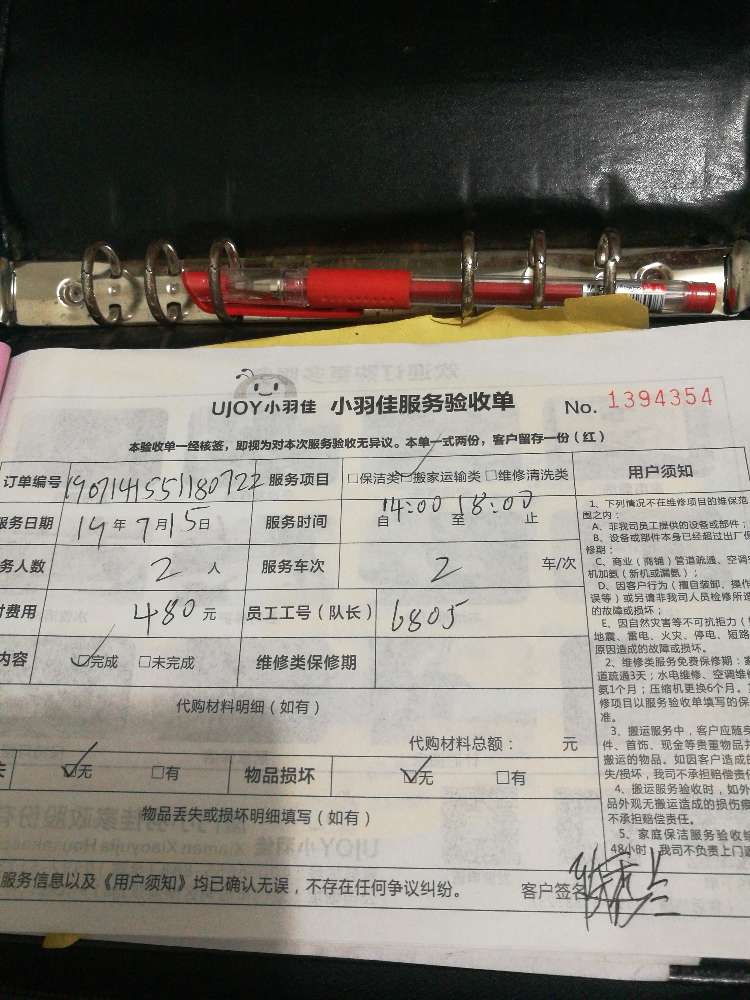 UJOY小羽佳 小羽佳服务验收单 No. 1394354
本验收单一经核签，即视为对本次服务验收无异议。本单一式两份，客户留存一份（红）
订单编号 1907141551180722 服务项目 □保洁类 ☑搬家运输类 □维修清洗类 用户须知
服务日期 19年7月15日 服务时间 自14:00至18:00止
务人数 2人 服务车次 2 车/次
付费用 480元 员工工号（队长） 6805
内容 ☑完成 □未完成 维修类保修期
代购材料明细（如有）
代购材料总额： 元
☑无 □有 物品损坏 ☑无 □有
物品丢失或损坏明细填写（如有）
服务信息以及《用户须知》均已确认无误，不存在任何争议纠纷。 客户签名
1、下列情况不在维修项目的维保范
围之内：
A、非我司员工提供的设备或部件；
B、设备或部件本身已经超过出厂保
修期；
C、商业（商铺）管道疏通、空调
机加氨（新机或漏氨）；
D、因客户行为（擅自装卸、操作
误等）或另请非我司人员检修所造
的故障或损坏；
E、因自然灾害等不可抗拒力（
地震、雷电、火灾、停电、短路
原因造成的故障或损坏。
2、维修类服务免费保修期：
道疏通3天；水电维修、空调维
氨1个月；压缩机更换6个月。
修项目以服务验收单填写的保
准。
3、搬运服务中，客户应随
件、首饰、现金等贵重物品
搬运的物品。如因客户造成
失/损坏，我司不承担赔偿责
4、搬运服务验收时，如外
品外观无搬运造成的损伤
不承担赔偿责任。
5、家庭保洁服务验收
48小时，我司不负责上门